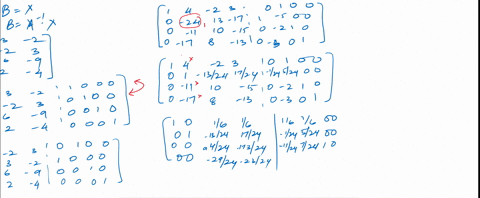 B = X
B = A⁻¹ X
3 -2
-2 3
6 -9
2 -4
3 -2 ; 1 0 0 0
-2 3 ; 0 1 0 0
6 -9 ; 0 0 1 0
2 -4 ; 0 0 0 1
-2 3 ; 0 1 0 0
3 -2 ; 1 0 0 0
6 -9 ; 0 0 1 0
2 -4 | 0 0 0 1
1 4 -2 3 ; 0 1 0 0
0 -24 13 -17 ; 1 -5 0 0
0 -11 10 -15 0 -2 1 0
0 -17 8 -13 0 -3 0 1
1 4 -2 3 ; 0 1 0 0
0 1 -13/24 17/24 -1/24 5/24 0 0
0 -11 10 -5 0 -2 1 0
0 -17 8 -13 0 -3 0 1
1 0 1/6 1/6 1/6 1/6 0 0
0 1 -13/24 17/24 -1/24 5/24 0 0
0 0 /24 /24 -11/24 7/24 1 0
0 0 -29/24 -23/24